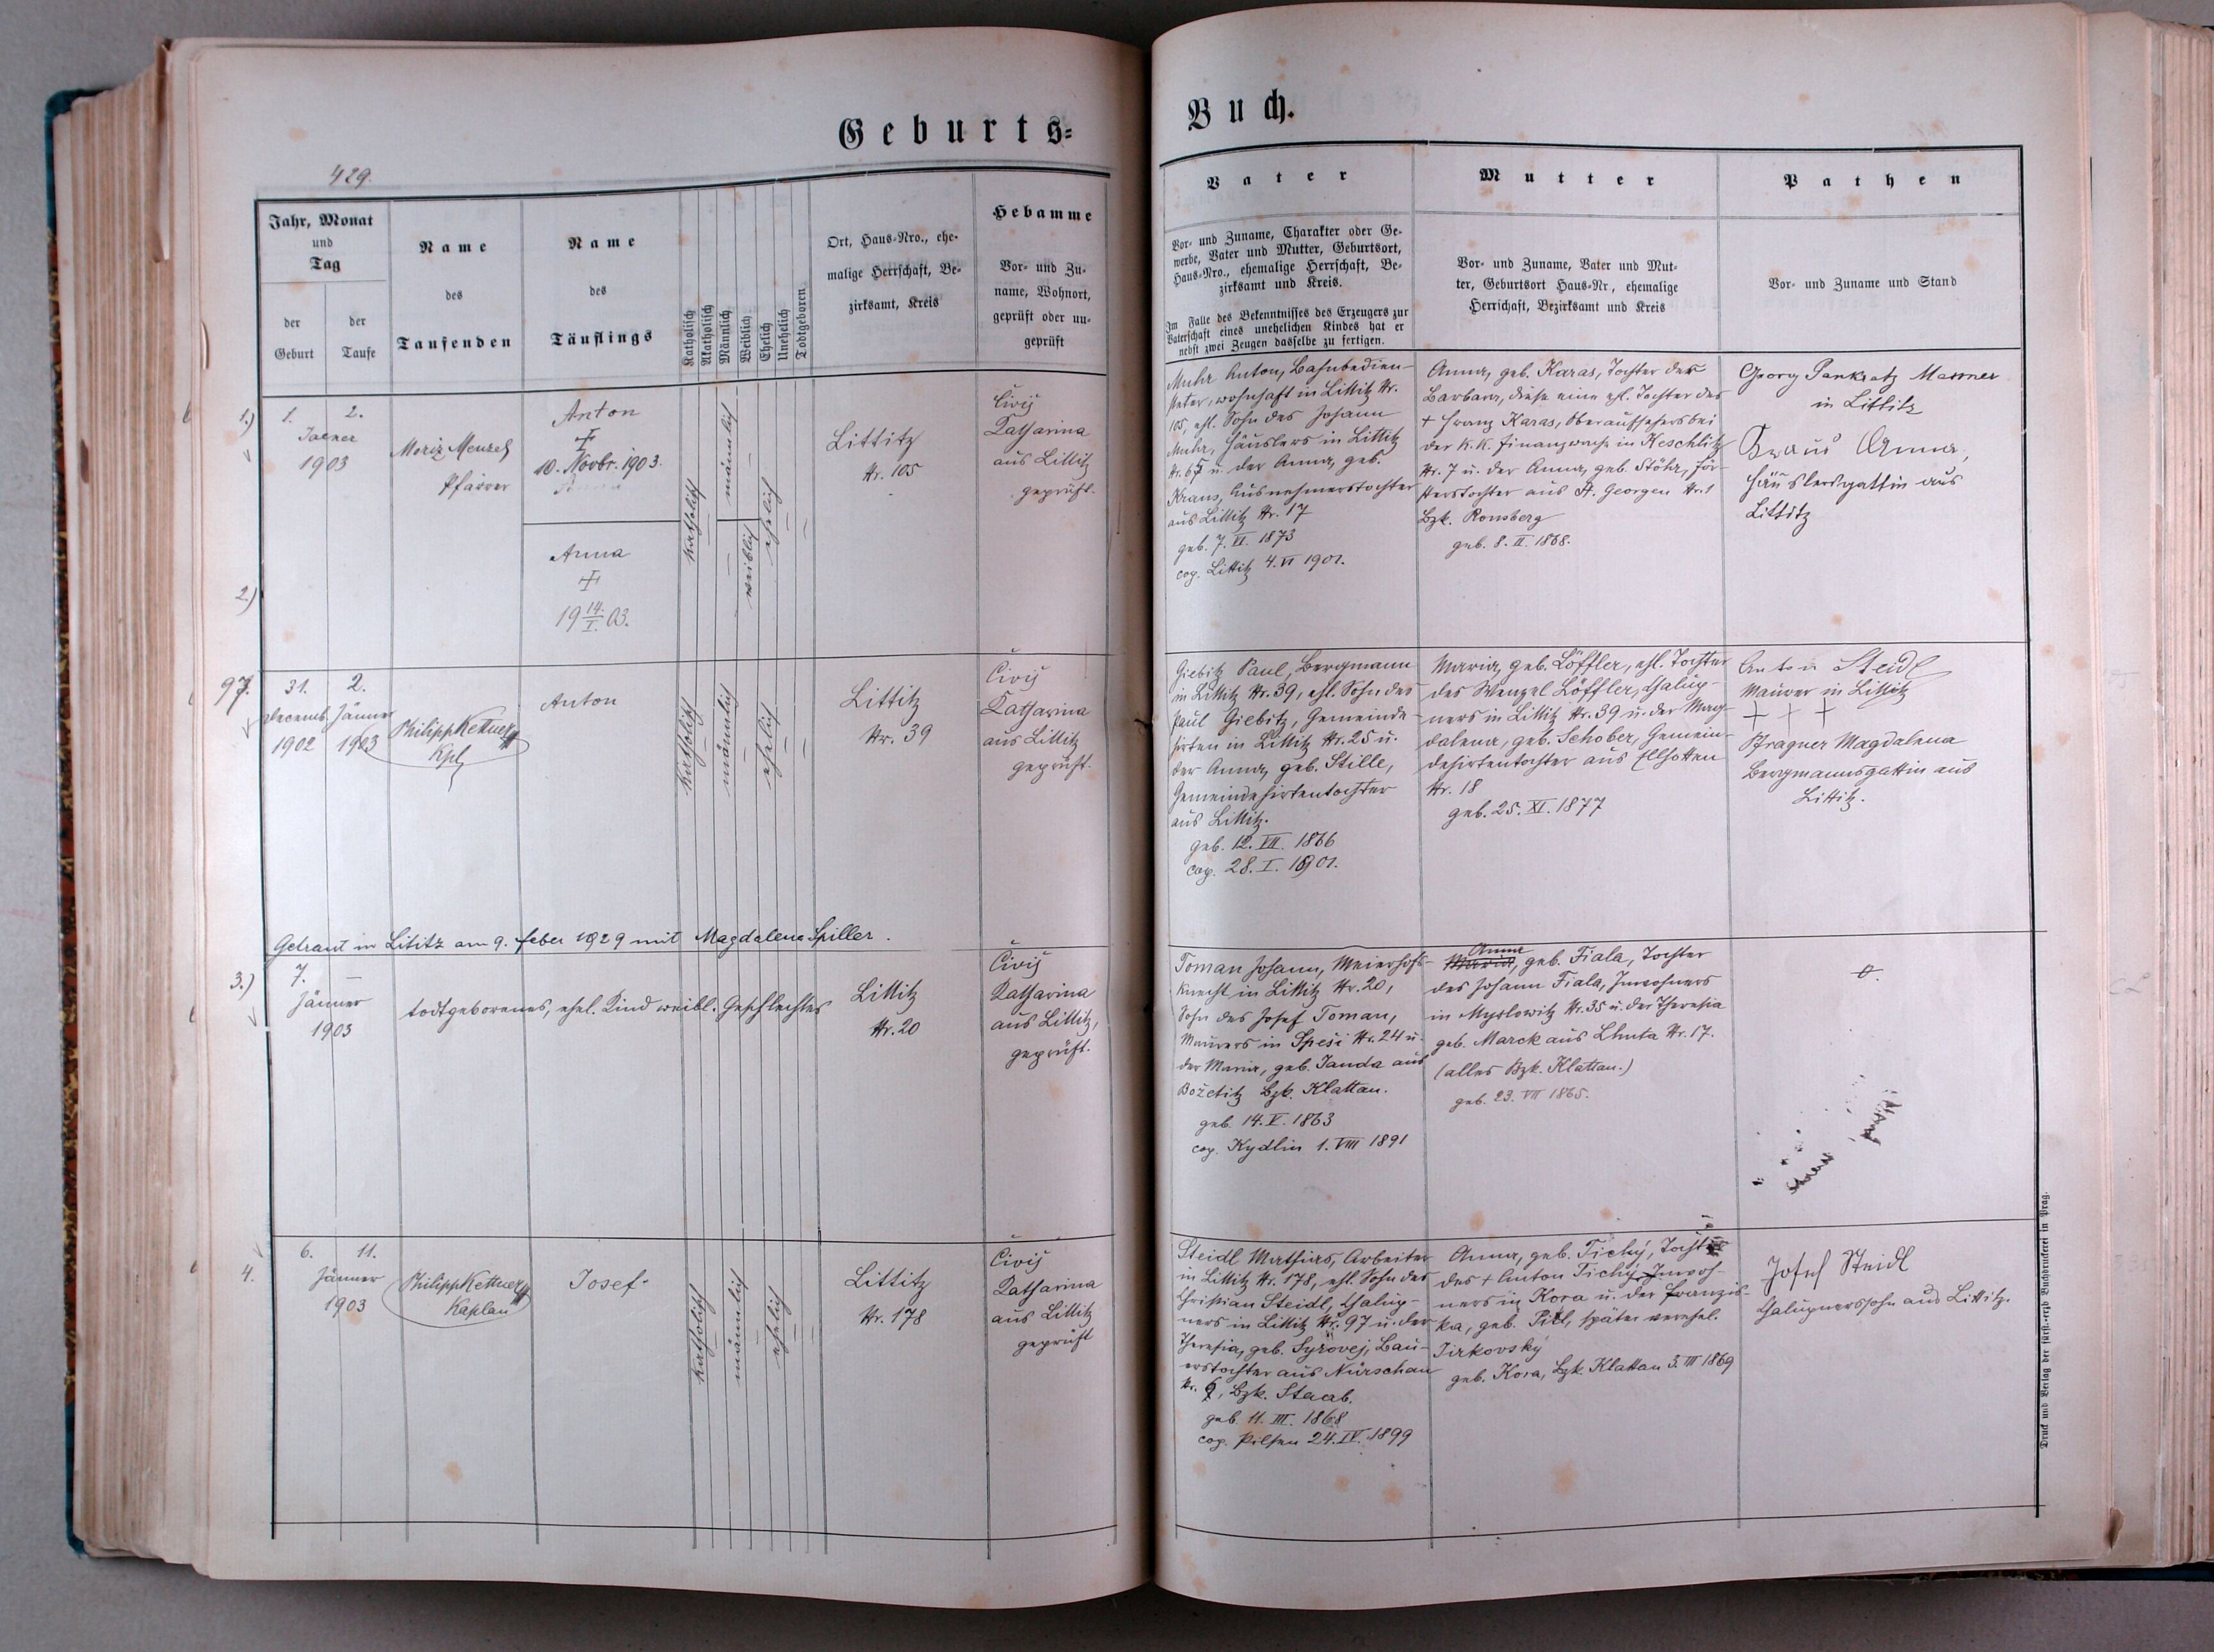 Geburts=
429.
Jahr, Monat
und
Tag
der
Geburt
der
Taufe
Name
des
Taufenden
Name
des
Täuflings
Katholisch
Akatholisch
Männlich
Weiblich
Ehelich
Unehelich
Todtgeboren
Ort, Haus-Nro., ehe-
malige Herrschaft, Be-
zirksamt, Kreis
Hebamme
Vor- und Zu-
name, Wohnort,
geprüft oder un-
geprüft
1.)
1.
2.
Jaener
1903
Moriz Menzel
Pfarrer
Anton
10. Novbr. 1903.
katholisch
männlich
ehelich
Littitz
Nr. 105
Čivij
Katharina
aus Littitz
geprüft.
2.)
Anna
19 14./I. 03.
weiblich
97.
31.
Decemb.
1902
2.
Jänner
1903
Philipp Kettner
Kpl
Anton
katholisch
männlich
ehelich
Littitz
Nr. 39
Čivij
Katharina
aus Littitz
geprüft.
Getraut in Lititz am 9. feber 1929 mit Magdalena Spiller.
3.)
7. —
Jänner
1903
todtgeborenes, ehel. Kind weibl. Geschlechtes
Littitz
Nr. 20
Čivij
Katharina
aus Littitz,
geprüft.
4.
6.
11.
Jänner
1903
Philipp Kettner
Kaplan
Josef
katholisch
männlich
ehelich
Littitz
Nr. 178
Čivij
Katharina
aus Littitz
geprüft
Buch.
Vater
Vor- und Zuname, Charakter oder Ge-
werbe, Vater und Mutter, Geburtsort,
Haus-Nro., ehemalige Herrschaft, Be-
zirksamt und Kreis.
Im Falle des Bekenntnisses des Erzeugers zur
Vaterschaft eines unehelichen Kindes hat er
nebst zwei Zeugen dasselbe zu fertigen.
Mutter
Vor- und Zuname, Vater und Mut-
ter, Geburtsort Haus-Nr, ehemalige
Herrschaft, Bezirksamt und Kreis
Pathen
Vor- und Zuname und Stand
Muhr Anton, Bahnbedien-
steter, wohnhaft in Littitz Nr.
105, ehl. Sohn des Johann
Muhr, Häuslers in Littitz
Nr. 65 u. der Anna, geb.
Kraus, Ausnehmerstochter
aus Littitz Nr. 17
geb. 7. VI. 1873
cop. Littitz 4. VI 1901.
Anna, geb. Karas, Tochter der
Barbara, diese eine ehl. Tochter des
+ Franz Karas, Oberaufsehers bei
der k. k. Finanzwache in Heschlitz
Nr. 7 u. der Anna, geb. Stöhr, För-
sterstochter aus St. Georgen Nr. 1
Bzk. Ronsberg
geb. 8. II. 1868.
Georg Pankratz
in Littitz
Kraus Anna,
Häuslersgattin aus
Littitz
Giebitz Paul, Bergmann
in Littitz Nr. 39, ehl. Sohn des
Paul Giebitz, Gemeinde-
hirten in Littitz Nr. 25 u.
der Anna, geb. Stille,
Gemeindehirtentochter
aus Littitz.
geb. 12. VII. 1866
cop. 28. I. 1901.
Maria, geb. Löffler, ehl. Tochter
des Wenzel Löffler, Chalup-
ners in Littitz Nr. 39 u. der Mag-
dalena, geb. Schober, Gemein-
dehirtentochter aus Ellhotten
Nr. 18
geb. 25. XI. 1877
Anton Steidl
Maurer in Littitz
+ + +
Pfragner Magdalena
Bergmannsgattin aus
Littitz.
Toman Johann, Meierhofs-
knecht in Littitz Nr. 20,
Sohn des Josef Toman,
Maurers in Speši Nr. 24 u.
der Maria, geb. Janda aus
Božetitz Bzk. Klattau.
geb. 14. V. 1863
cop. Kydlin 1. VIII 1891
Anna
Maria, geb. Fiala, Tochter
des Johann Fiala, Inwohners
in Myslowitz Nr. 35 u. der Theresia
geb. Marek aus Lhuta Nr. 17.
(alles Bzk. Klattau.)
geb. 23. VII 1865.
Steidl Mathias, Arbeiter
in Littitz Nr. 178, ehl. Sohn des
Christian Steidl, Chalup-
ners in Littitz Nr. 97 u. der
Theresia, geb. Syrovej, Bau-
erstochter aus Nürschan
Nr. 9, Bzk. Staab.
geb. 11. III. 1868
cop. Pilsen 24. IV. 1899
Anna, geb. Tichý, Tochter
des + Anton Tichý Inwoh-
ners in Kora u. der Franzis-
ka, geb. Pitl, später verehel.
Jirkovský
geb. Kora, Bzk. Klattau 3. III 1869
Josef Steidl
Chalupnerssohn aus Littitz.
Druck und Verlag der fürst.-erzb Buchdruckerei in Prag.